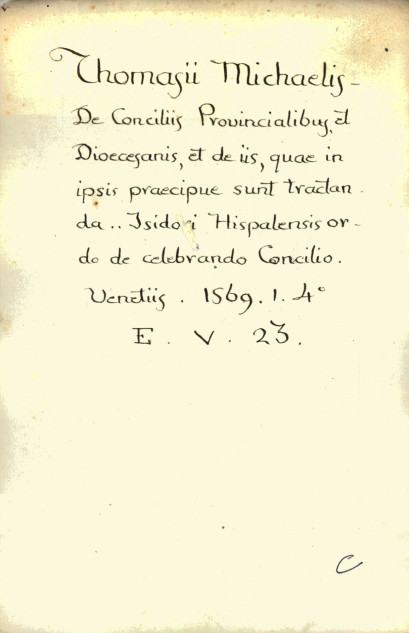 Thomasii Michaelis-
De Conciliis Provincialibus, et
Dioecesanis, et de iis, quae in
ipsis praecipue sunt tractan-
da.. Isidori Hispalensis or-
do de celebrando Concilio.
Venetiis. 1569. 1. 4°
E. V. 23.
C